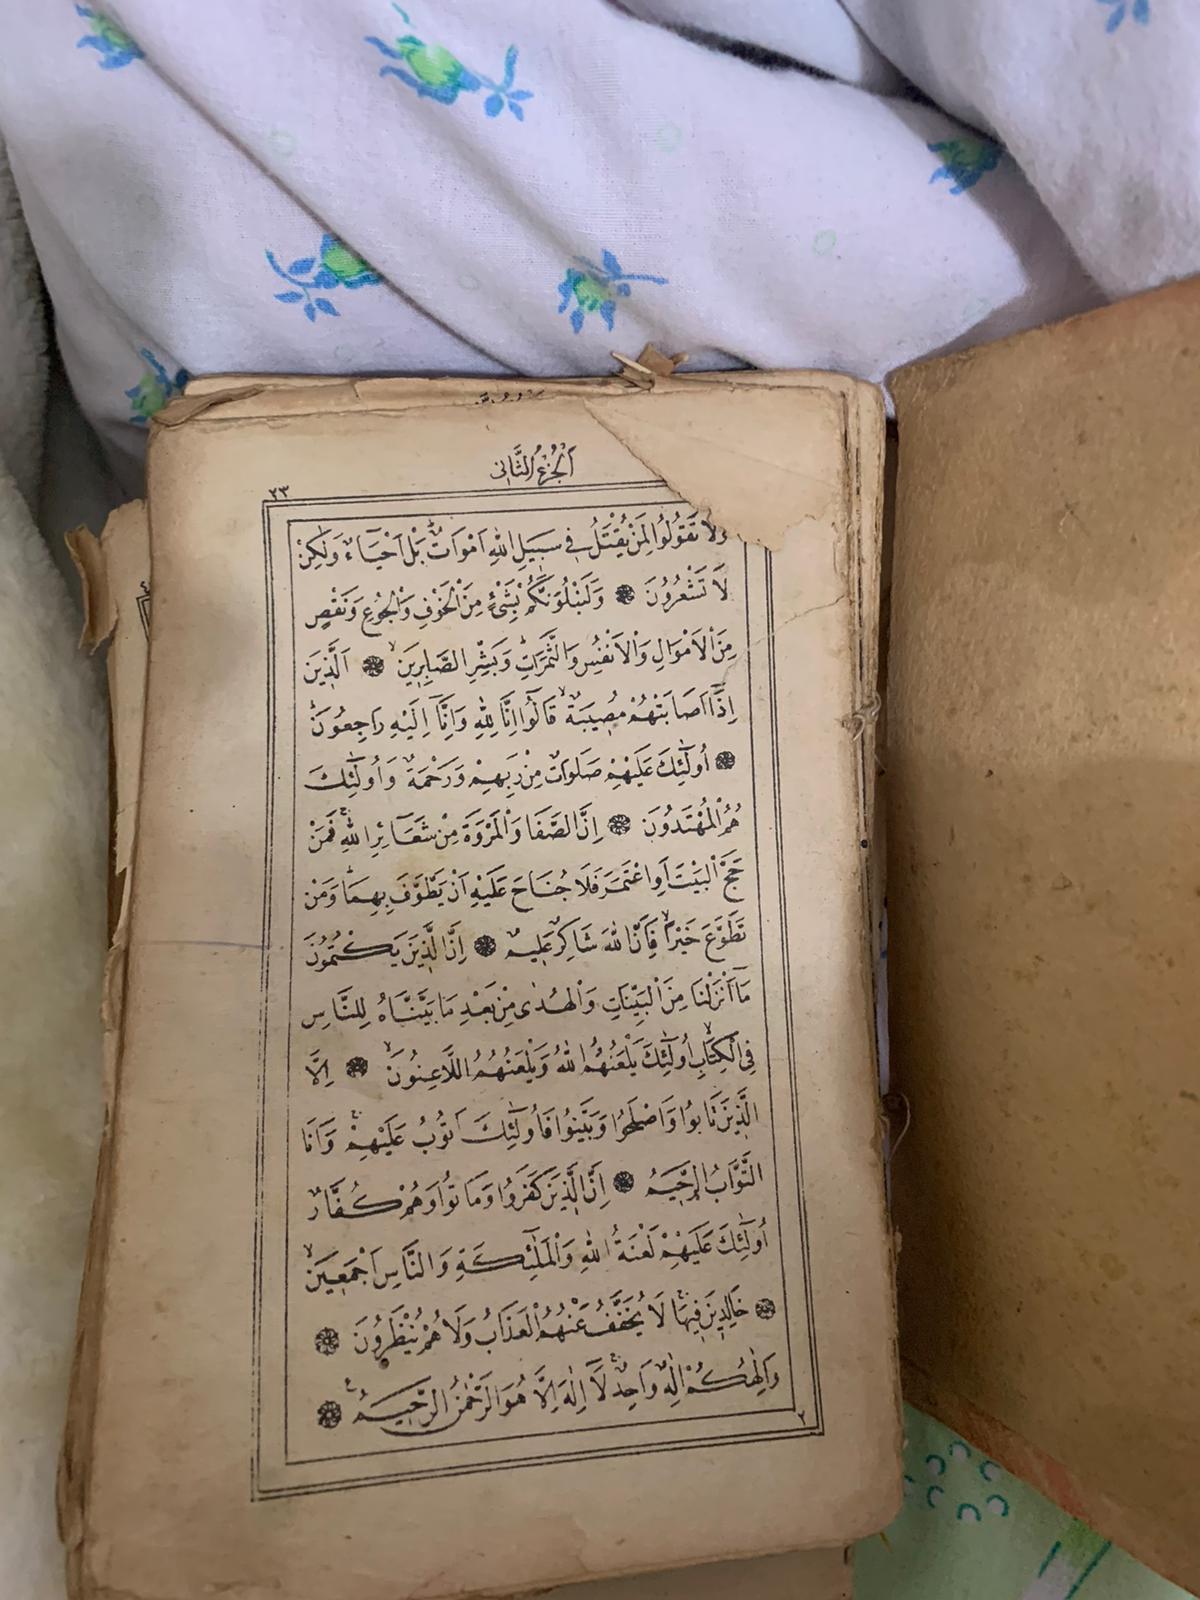 اَلْجُزْءُ الثَّانِى
٢٣
وَلَا تَقُولُوا لِمَنْ يُقْتَلُ فِى سَبِيلِ اللّٰهِ اَمْوَاتٌ بَلْ اَحْيَٓاءٌ وَلٰكِنْ
لَا تَشْعُرُونَ ۞ وَلَنَبْلُوَنَّكُمْ بِشَىْءٍ مِنَ الْخَوْفِ وَالْجُوعِ وَنَقْصٍ
مِنَ الْاَمْوَالِ وَالْاَنْفُسِ وَالثَّمَرَاتِ وَبَشِّرِ الصَّابِرِينَ ۞ اَلَّذِينَ
اِذَٓا اَصَابَتْهُمْ مُصِيبَةٌ قَالُٓوا اِنَّا لِلّٰهِ وَاِنَّٓا اِلَيْهِ رَاجِعُونَ
۞ اُولٰٓئِكَ عَلَيْهِمْ صَلَوَاتٌ مِنْ رَبِهِمْ وَرَحْمَةٌ وَاُولٰٓئِكَ
هُمُ الْمُهْتَدُونَ ۞ اِنَّ الصَّفَا وَالْمَرْوَةَ مِنْ شَعَٓائِرِ اللّٰهِ فَمَنْ
حَجَّ الْبَيْتَ اَوِ اعْتَمَرَ فَلَا جُنَاحَ عَلَيْهِ اَنْ يَطَّوَّفَ بِهِمَا وَمَنْ
تَطَوَّعَ خَيْرًا فَاِنَّ اللّٰهَ شَاكِرٌ عَلِيمٌ ۞ اِنَّ الَّذِينَ يَكْتُمُونَ
مَٓا اَنْزَلْنَا مِنَ الْبَيِّنَاتِ وَالْهُدٰى مِنْ بَعْدِ مَا بَيَّنَّاهُ لِلنَّاسِ
فِى الْكِتَابِ اُولٰٓئِكَ يَلْعَنُهُمُ اللّٰهُ وَيَلْعَنُهُمُ اللَّاعِنُونَ ۞ اِلَّا
الَّذِينَ تَابُوا وَاَصْلَحُوا وَبَيَّنُوا فَاُولٰٓئِكَ اَتُوبُ عَلَيْهِمْ وَاَنَا
التَّوَّابُ الرَّحِيمُ ۞ اِنَّ الَّذِينَ كَفَرُوا وَمَاتُوا وَهُمْ كُفَّارٌ
اُولٰٓئِكَ عَلَيْهِمْ لَعْنَةُ اللّٰهِ وَالْمَلٰٓئِكَةِ وَالنَّاسِ اَجْمَعِينَ
۞ خَالِدِينَ فِيهَا لَا يُخَفَّفُ عَنْهُمُ الْعَذَابُ وَلَا هُمْ يُنْظَرُونَ ۞
وَاِلٰهُكُمْ اِلٰهٌ وَاحِدٌ لَٓا اِلٰهَ اِلَّا هُوَ الرَّحْمٰنُ الرَّحِيمُ ۞
٢